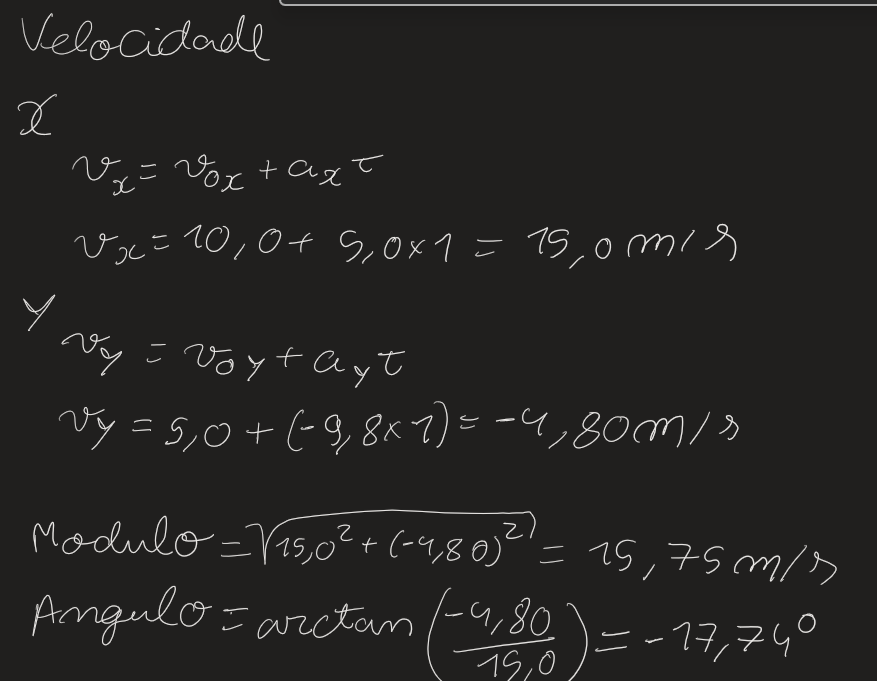 Velocidade
X
vₓ = v₀ₓ + aₓt
vₓ = 10,0 + 5,0×1 = 15,0 m/s
Y
v_y = v₀y + a_y t
v_y = 5,0 + (-9,8×1) = -4,80 m/s
Modulo = √(15,0² + (-4,80)²) = 15,75 m/s
Angulo = arctan (-4,80/15,0) = -17,74°